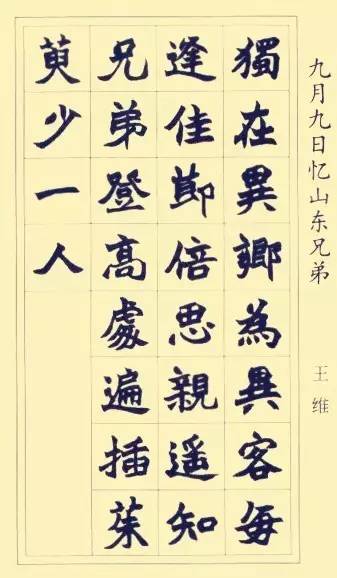 九月九日忆山东兄弟
王维
獨在異鄉為異客每
逢佳節倍思親遥知
兄弟登高處遍插茱
萸少一人